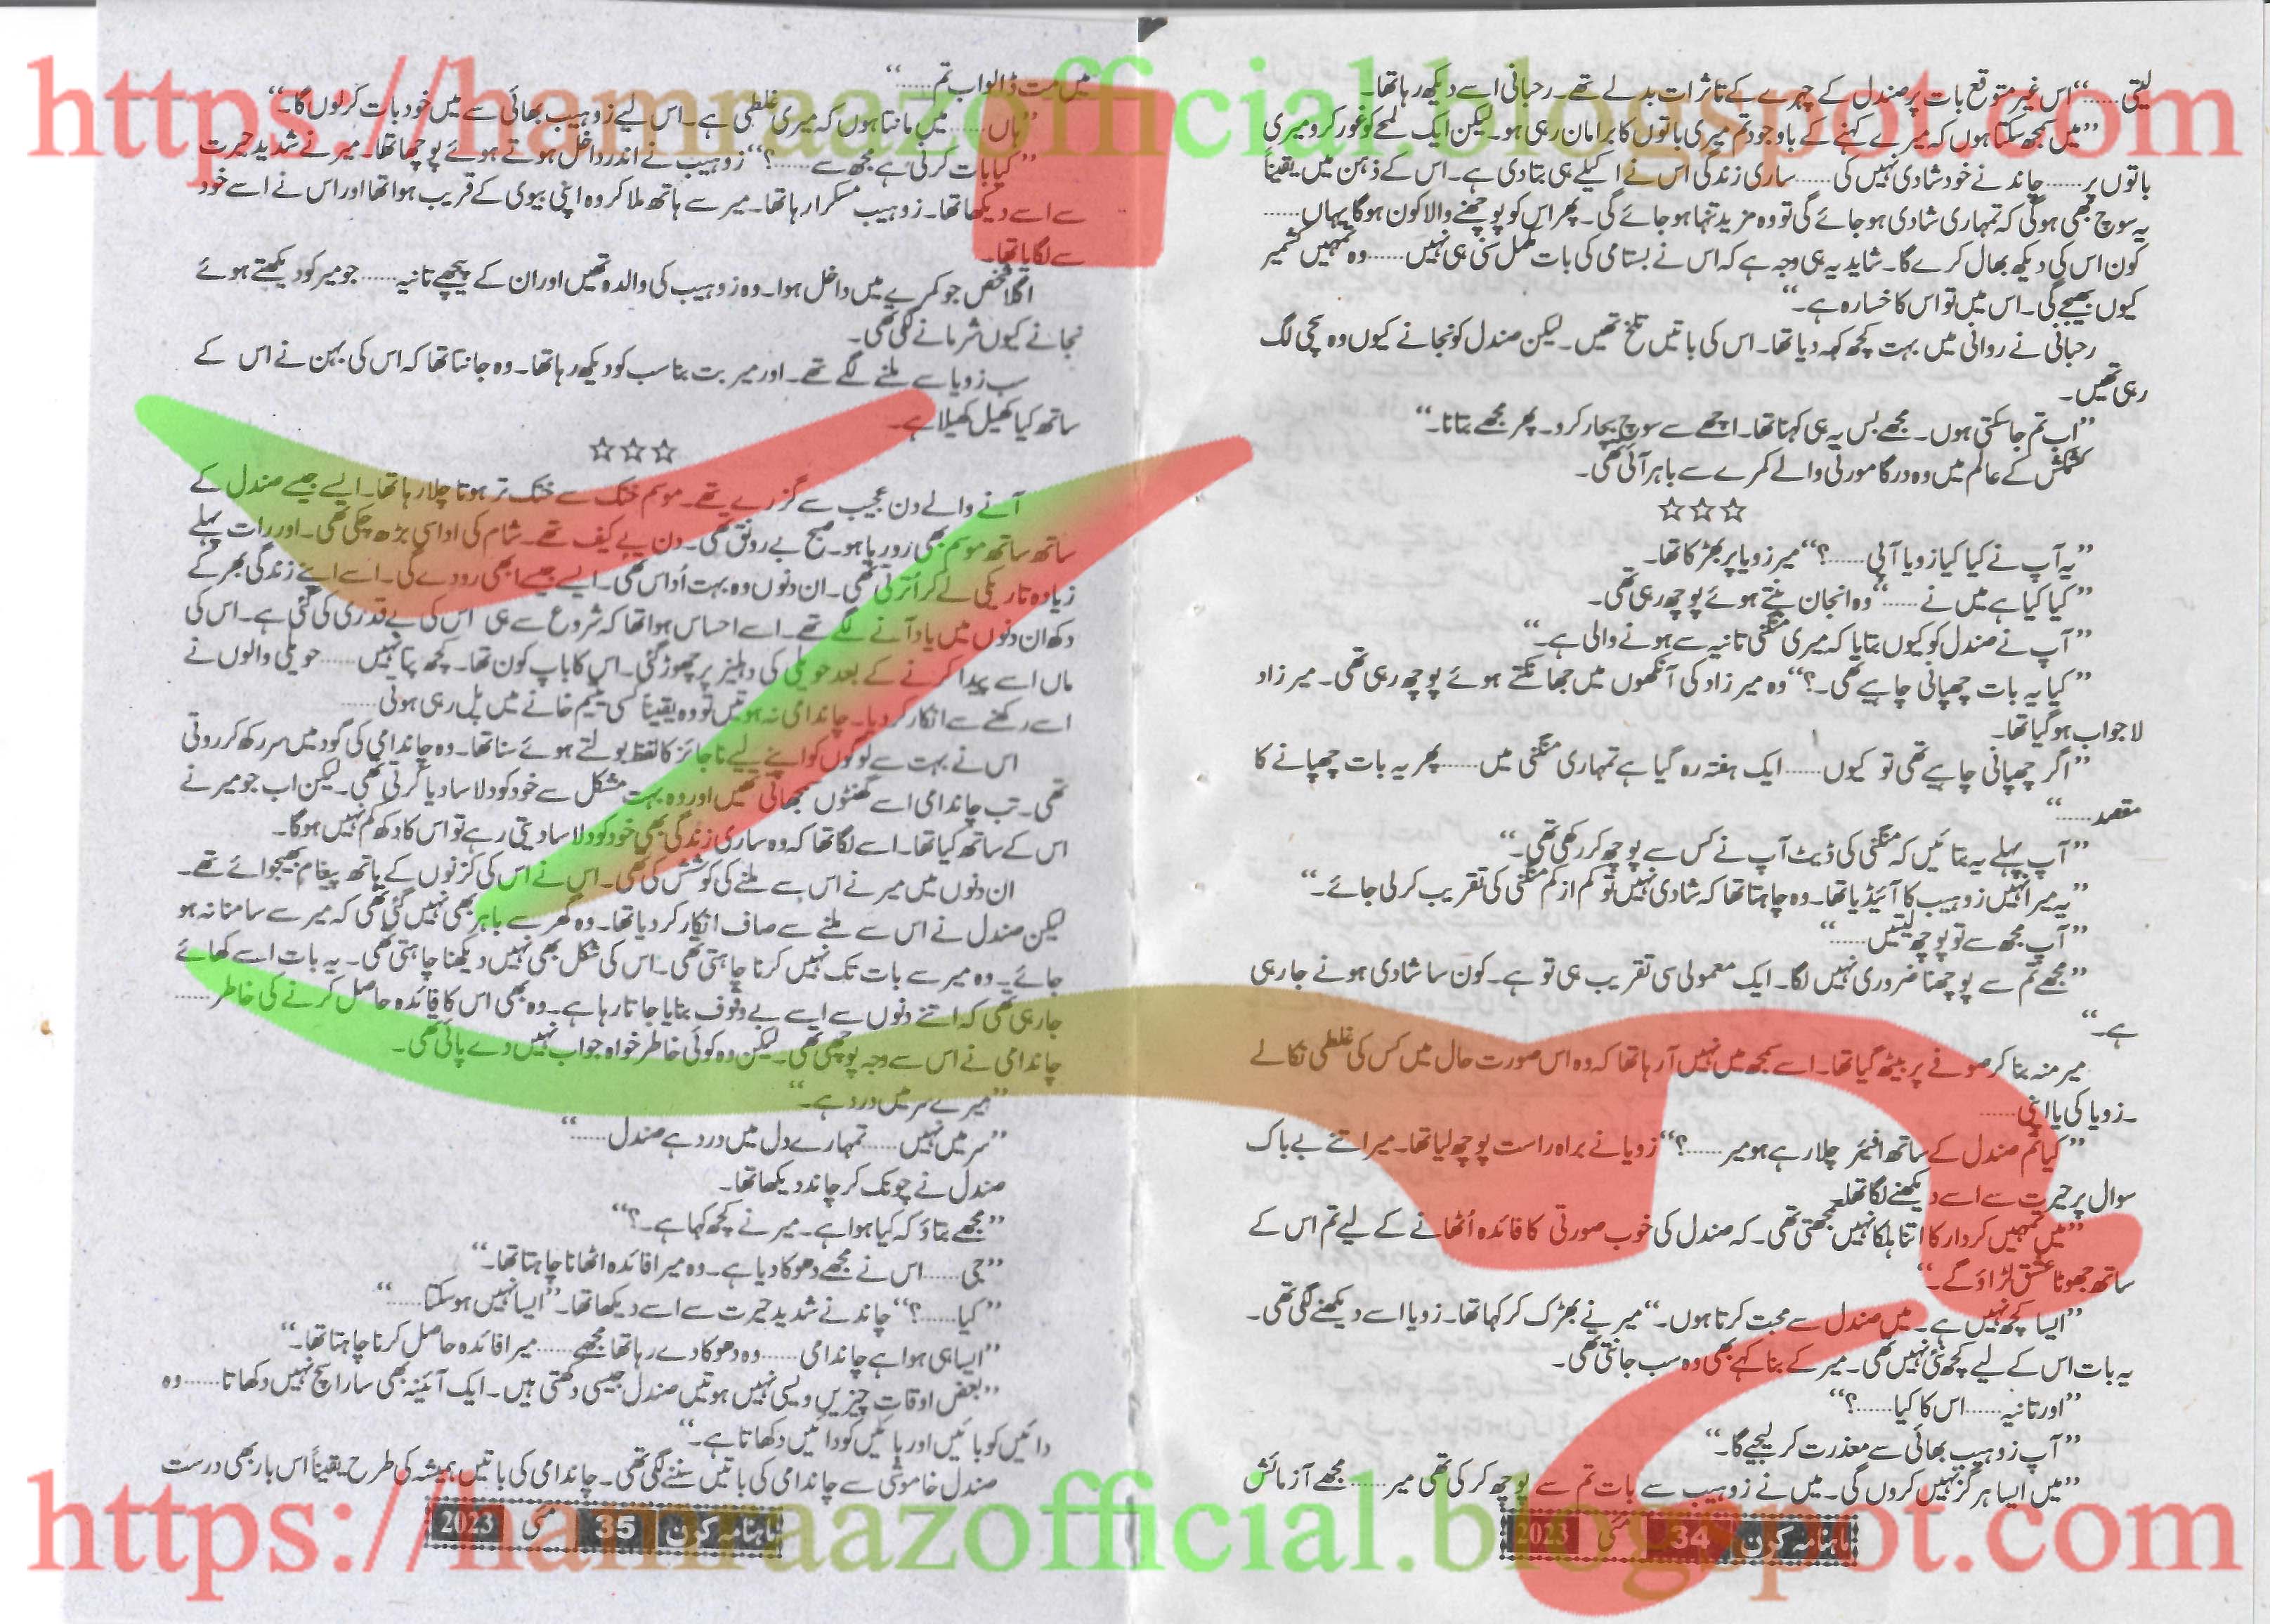 https://hamraazofficial.blogspot.com
لیتی......‘‘اس غیر متوقع بات پر صندل کے چہرے کے تاثرات بدلے تھے۔ رحبانی اسے دیکھ رہا تھا۔
’’میں سمجھ سکتا ہوں کہ میرے کہنے کے باوجود تم میری باتوں کا برا مان رہی ہو۔ لیکن ایک لمحے کو غور کرو میری
باتوں پر...... چاند نے خود شادی نہیں کی...... ساری زندگی اس نے اکیلے ہی بتا دی ہے۔ اس کے ذہن میں یقیناً
یہ سوچ بھی ہوگی کہ تمہاری شادی ہو جائے گی تو وہ مزید تنہا ہو جائے گی۔ پھر اس کو پوچھنے والا کون ہوگا یہاں......
کون اس کی دیکھ بھال کرے گا۔ شاید یہ ہی وجہ ہے کہ اس نے بستامی کی بات مکمل سنی ہی نہیں...... وہ تمہیں کشمیر
کیوں بھیجے گی۔ اس میں تو اس کا خسارہ ہے۔‘‘
رحبانی نے روانی میں بہت کچھ کہہ دیا تھا۔ اس کی باتیں تلخ تھیں۔ لیکن صندل کو نجانے کیوں وہ سچی لگ
رہی تھیں۔
’’اب تم جا سکتی ہوں۔ مجھے بس یہ ہی کہنا تھا۔ اچھے سے سوچ بچار کرو۔ پھر مجھے بتانا۔‘‘
کشمکش کے عالم میں وہ درگا مورتی والے کمرے سے باہر آئی تھی۔
☆☆☆
’’یہ آپ نے کیا کیا زویا آپی......؟‘‘ میر زویا پر بھڑکا تھا۔
’’کیا کیا ہے میں نے......‘‘ وہ انجان بنتے ہوئے پوچھ رہی تھی۔
’’آپ نے صندل کو کیوں بتایا کہ میری منگنی تانیہ سے ہونے والی ہے۔‘‘
’’کیا یہ بات چھپانی چاہیے تھی۔؟‘‘ وہ میر زاد کی آنکھوں میں جھانکتے ہوئے پوچھ رہی تھی۔ میر زاد
لاجواب ہو گیا تھا۔
’’اگر چھپانی چاہیے تھی تو کیوں...... ایک ہفتہ رہ گیا ہے تمہاری منگنی میں...... پھر یہ بات چھپانے کا
مقصد......‘‘
’’آپ پہلے یہ بتائیں کہ منگنی کی ڈیٹ آپ نے کس سے پوچھ کر رکھی تھی۔‘‘
’’یہ میرا نہیں زوہیب کا آئیڈیا تھا۔ وہ چاہتا تھا کہ شادی نہیں تو کم از کم منگنی کی تقریب کر لی جائے۔‘‘
’’آپ مجھ سے تو پوچھ لیتیں......‘‘
’’مجھے تم سے پوچھنا ضروری نہیں لگا۔ ایک معمولی سی تقریب ہی تو ہے۔ کون سا شادی ہونے جا رہی
ہے۔‘‘
میر منہ بنا کر صوفے پر بیٹھ گیا تھا۔ اسے سمجھ میں نہیں آ رہا تھا کہ وہ اس صورت حال میں کس کی غلطی نکالے
۔زویا کی یا اپنی......
’’کیا تم صندل کے ساتھ افیئر چلا رہے ہو میر......؟‘‘ زویا نے براہ راست پوچھ لیا تھا۔ میر اتنے بے باک
سوال پر حیرت سے اسے دیکھنے لگا تھا۔
’’میں تمہیں کردار کا اتنا ہلکا نہیں سمجھتی تھی۔ کہ صندل کی خوب صورتی کا فائدہ اُٹھانے کے لیے تم اس کے
ساتھ جھوٹا عشق لڑاؤ گے۔‘‘
’’ایسا کچھ نہیں ہے۔ میں صندل سے محبت کرتا ہوں۔‘‘ میر نے بھڑک کر کہا تھا۔ زویا اسے دیکھنے لگی تھی۔
یہ بات اس کے لیے کچھ نئی نہیں تھی۔ میر کے بنا کہے بھی وہ سب جانتی تھی۔
’’اور تانیہ...... اس کا کیا......؟‘‘
’’آپ زوہیب بھائی سے معذرت کر لیجیے گا۔‘‘
’’میں ایسا ہرگز نہیں کروں گی۔ میں نے زوہیب سے بات تم سے پوچھ کر کی تھی میر...... مجھے آزمائش
ماہنامہ کرن 34 مئی 2023
میں مت ڈالو اب تم......‘‘
’’ہاں...... میں مانتا ہوں کہ میری غلطی ہے۔ اس لیے زوہیب بھائی سے میں خود بات کر لوں گا۔‘‘
’’کیا بات کرنی ہے مجھ سے......؟‘‘ زوہیب نے اندر داخل ہوتے ہوئے پوچھا تھا۔ میر نے شدید حیرت
سے اسے دیکھا تھا۔ زوہیب مسکرا رہا تھا۔ میر سے ہاتھ ملا کر وہ اپنی بیوی کے قریب ہوا تھا اور اس نے اسے خود
سے لگایا تھا۔
اگلا شخص جو کمرے میں داخل ہوا۔ وہ زوہیب کی والدہ تھیں اور ان کے پیچھے تانیہ...... جو میر کو دیکھتے ہوئے
نجانے کیوں شرمانے لگی تھی۔
سب زویا سے ملنے لگے تھے۔ اور میر بت بنا سب کو دیکھ رہا تھا۔ وہ جانتا تھا کہ اس کی بہن نے اس کے
ساتھ کیا کھیل کھیلا ہے۔
☆☆☆
آنے والے دن عجیب سے گزرے تھے۔ موسم خنک سے خنک تر ہوتا چلا رہا تھا۔ ایسے جیسے صندل کے
ساتھ ساتھ موسم بھی رو رہا ہو۔ صبح بے رونق تھی۔ دن بے کیف تھے۔ شام کی اداسی بڑھ چکی تھی۔ اور رات پہلے
زیادہ تاریکی لے کر اُترتی تھی۔ ان دنوں وہ بہت اُداس تھی۔ ایسے جیسے ابھی رو دے گی۔ اسے اپنے زندگی بھر کے
دکھ ان دنوں میں یاد آنے لگے تھے۔ اسے احساس ہوا تھا کہ شروع سے ہی اس کی بے قدری کی گئی ہے۔ اس کی
ماں اسے پیدا کرنے کے بعد حویلی کی دہلیز پر چھوڑ گئی۔ اس کا باپ کون تھا۔ کچھ پتا نہیں...... حویلی والوں نے
اسے رکھنے سے انکار کر دیا۔ چاند امی نہ ہوتیں تو وہ یقیناً کسی یتیم خانے میں پل رہی ہوتی......
اس نے بہت سے لوگوں کو اپنے لیے ناجائز کا لفظ بولتے ہوئے سنا تھا۔ وہ چاند امی کی گود میں سر رکھ کر روتی
تھی۔ تب چاند امی اسے گھنٹوں سمجھاتی تھیں اور وہ بہت مشکل سے خود کو دلاسا دیا کرتی تھی۔ لیکن اب جو میر نے
اس کے ساتھ کیا تھا۔ اسے لگا تھا کہ وہ ساری زندگی بھی خود کو دلاسا دیتی رہے تو اس کا دکھ کم نہیں ہوگا۔
ان دنوں میں میر نے اس سے ملنے کی کوشش کی تھی۔ اس نے اس کی کزنوں کے ہاتھ پیغام بھیجوائے تھے۔
لیکن صندل نے اس سے ملنے سے صاف انکار کر دیا تھا۔ وہ گھر سے باہر بھی نہیں گئی تھی کہ میر سے سامنا نہ ہو
جائے۔ وہ میر سے بات تک نہیں کرنا چاہتی تھی۔ اس کی شکل بھی نہیں دیکھنا چاہتی تھی۔ یہ بات اسے کھائے
جا رہی تھی کہ اتنے دنوں سے اسے بے وقوف بنایا جاتا رہا ہے۔ وہ بھی اس کا فائدہ حاصل کرنے کی خاطر......
چاند امی نے اس سے وجہ پوچھی تھی۔ لیکن وہ کوئی خاطر خواہ جواب نہیں دے پائی تھی۔
’’میرے سر میں درد ہے۔‘‘
’’سر میں نہیں...... تمہارے دل میں درد ہے صندل......‘‘
صندل نے چونک کر چاند دیکھا تھا۔
’’مجھے بتاؤ کہ کیا ہوا ہے۔ میر نے کچھ کہا ہے۔؟‘‘
’’جی...... اس نے مجھے دھوکا دیا ہے۔ وہ میرا فائدہ اٹھانا چاہتا تھا۔‘‘
’’کیا......؟‘‘ چاند نے شدید حیرت سے اسے دیکھا تھا۔ ’’ایسا نہیں ہو سکتا......‘‘
’’ایسا ہی ہوا ہے چاند امی...... وہ دھوکا دے رہا تھا مجھے...... میرا فائدہ حاصل کرنا چاہتا تھا۔‘‘
’’بعض اوقات چیزیں ویسی نہیں ہوتیں صندل جیسی دکھتی ہیں۔ ایک آئینہ بھی سارا سچ نہیں دکھاتا...... وہ
دائیں کو بائیں اور بائیں کو دائیں دکھاتا ہے۔‘‘
صندل خاموشی سے چاند امی کی باتیں سننے لگی تھی۔ چاند امی کی باتیں ہمیشہ کی طرح یقیناً اس بار بھی درست
ماہنامہ کرن 35 مئی 2023
https://hamraazofficial.blogspot.com